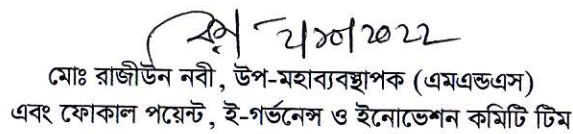 ২/১০/2022
মোঃ রাজীউন নবী, উপ-মহাব্যবস্থাপক (এমএন্ডএস)
এবং ফোকাল পয়েন্ট, ই-গর্ভনেন্স ও ইনোভেশন কমিটি টিম